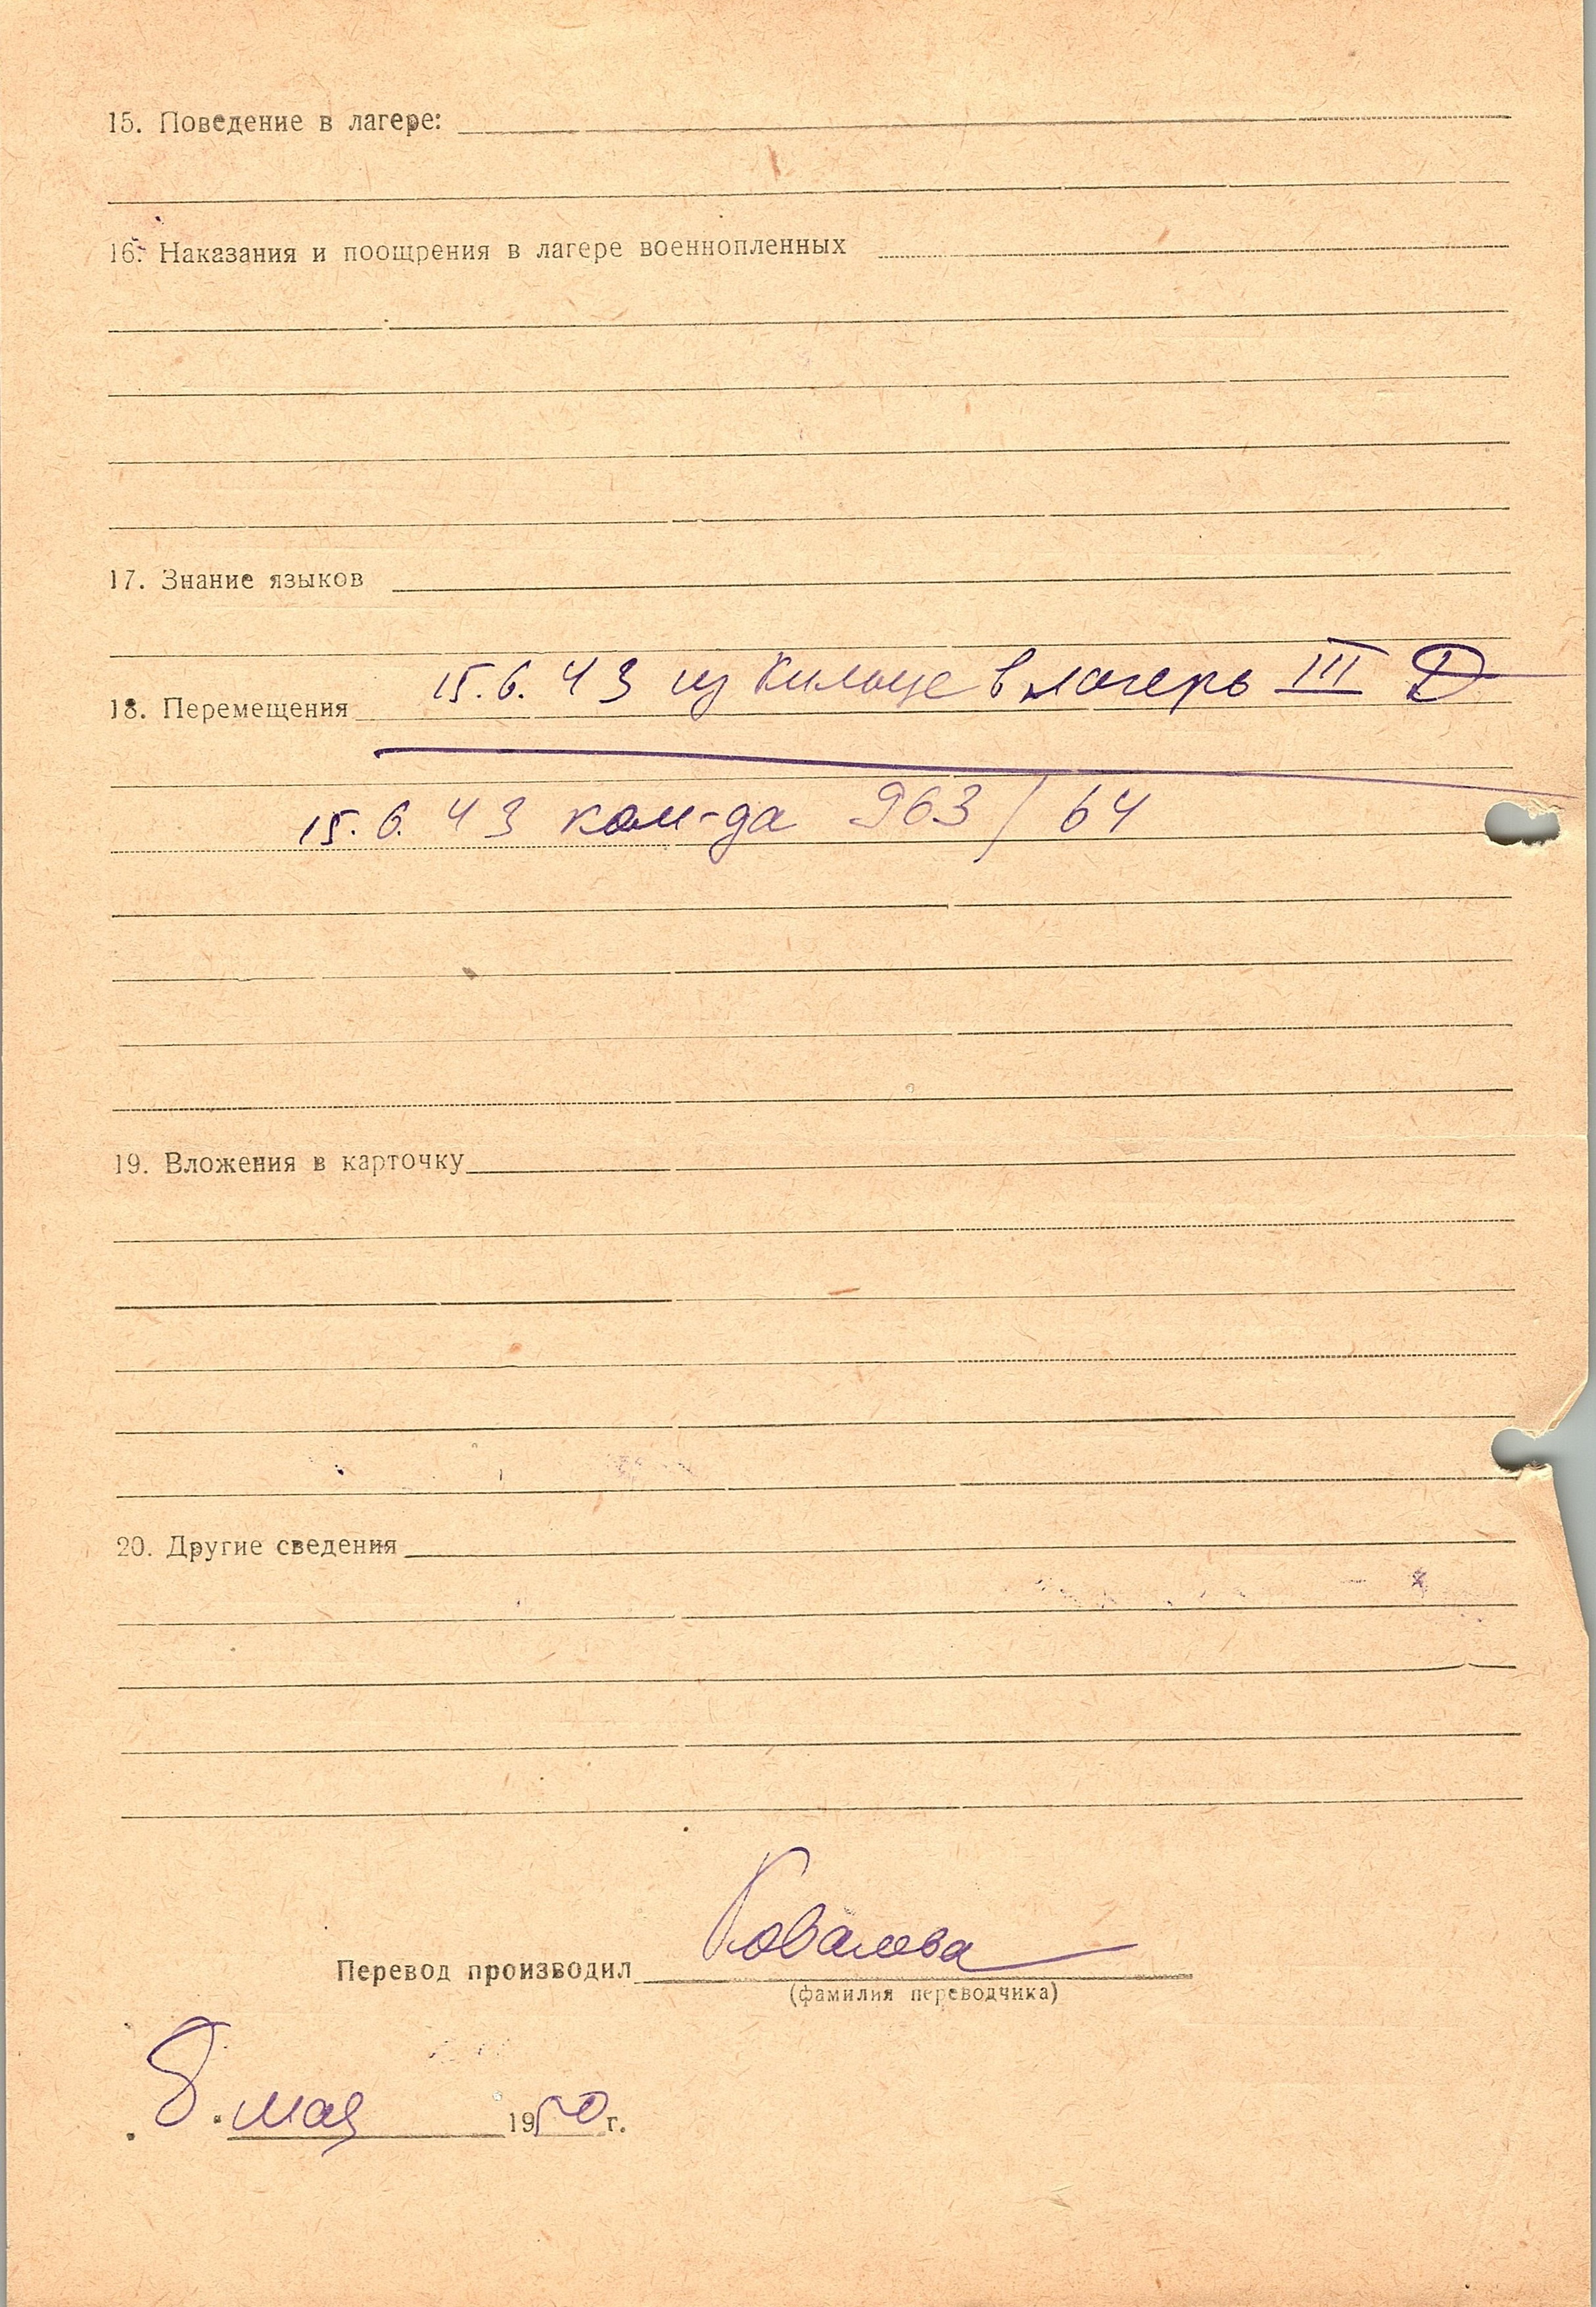 15. Поведение в лагере:
16. Наказания и поощрения в лагере военнопленных
17. Знание языков
18. Перемещения 15.6.43 из Кильце в лагерь III Д
15.6.43 ком-да 963/64
19. Вложения в карточку
20. Другие сведения
Перевод производил Ковалева
(фамилия переводчика)
8 мая 1950 г.